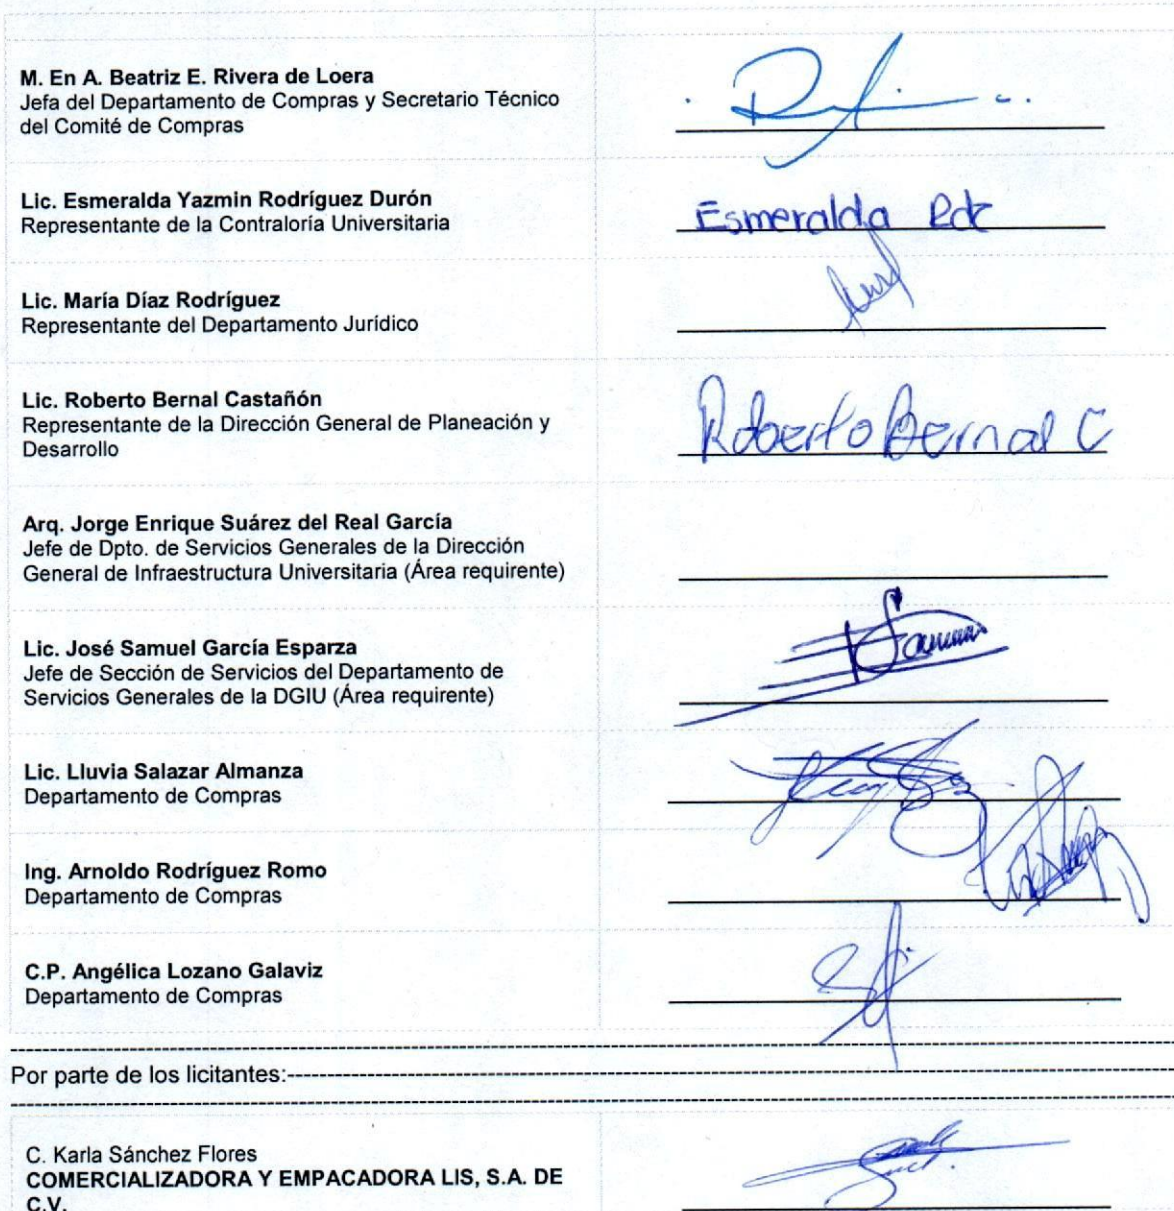 M. En A. Beatriz E. Rivera de Loera
Jefa del Departamento de Compras y Secretario Técnico
del Comité de Compras
Lic. Esmeralda Yazmin Rodríguez Durón
Representante de la Contraloría Universitaria
Esmeralda Rdz
Lic. María Díaz Rodríguez
Representante del Departamento Jurídico
Lic. Roberto Bernal Castañón
Representante de la Dirección General de Planeación y
Desarrollo
Roberto Bernal C
Arq. Jorge Enrique Suárez del Real García
Jefe de Dpto. de Servicios Generales de la Dirección
General de Infraestructura Universitaria (Área requirente)
Lic. José Samuel García Esparza
Jefe de Sección de Servicios del Departamento de
Servicios Generales de la DGIU (Área requirente)
Lic. Lluvia Salazar Almanza
Departamento de Compras
Ing. Arnoldo Rodríguez Romo
Departamento de Compras
C.P. Angélica Lozano Galaviz
Departamento de Compras
Por parte de los licitantes:
C. Karla Sánchez Flores
COMERCIALIZADORA Y EMPACADORA LIS, S.A. DE
C.V.